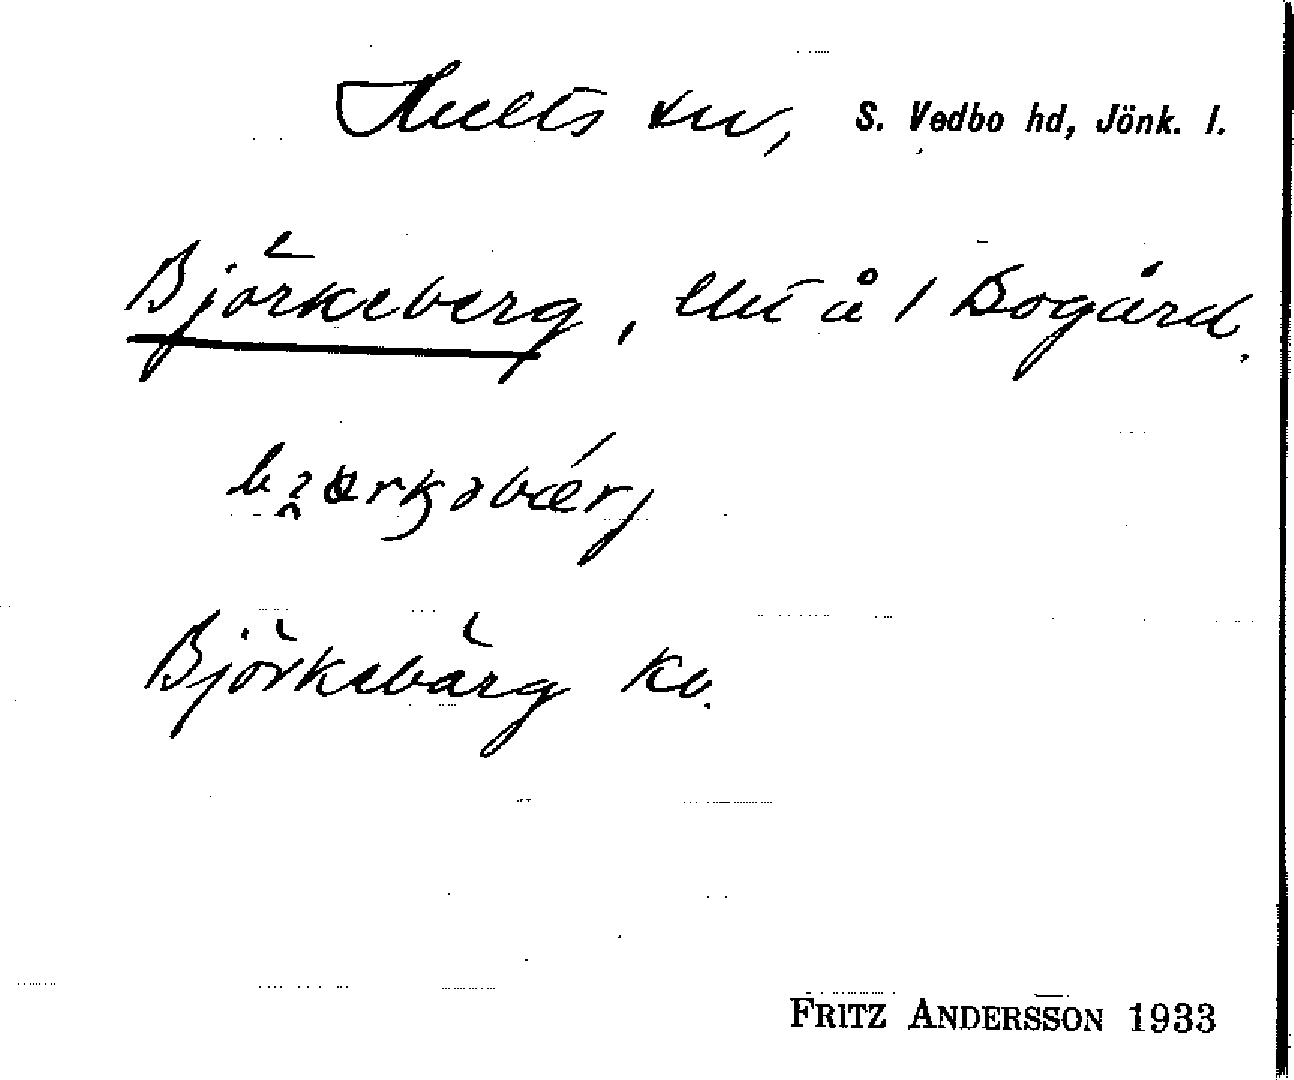 Hults sn, S. Vedbo hd, Jönk. l.
Björkeberg, lht å 1 Bogård.
Björkebärg kv.
FRITZ ANDERSSON 1933